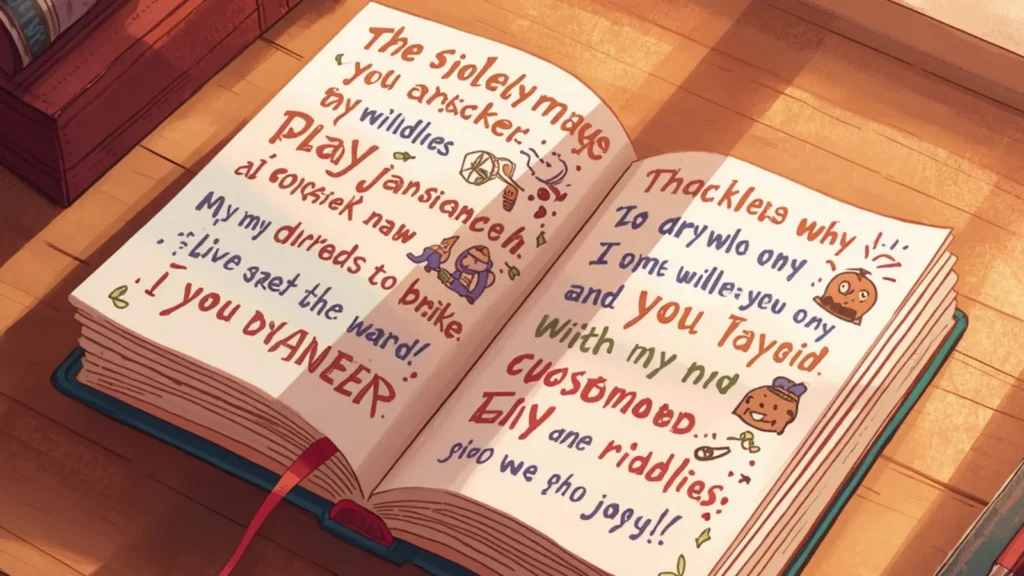 The Sjolely maye
you anscker.
my willdlies
PLAy jansianceh.
al coicsiek naw
My my dirreds to brike.
Live sret the ward!
I you DYANEER.
Thackleis why
To drywlo ony
I ome wille: you ony
and you Tayoid.
Wiith my nid
cuosbmoed...
Elly ane riddlies:
gioo we gho jogy!!